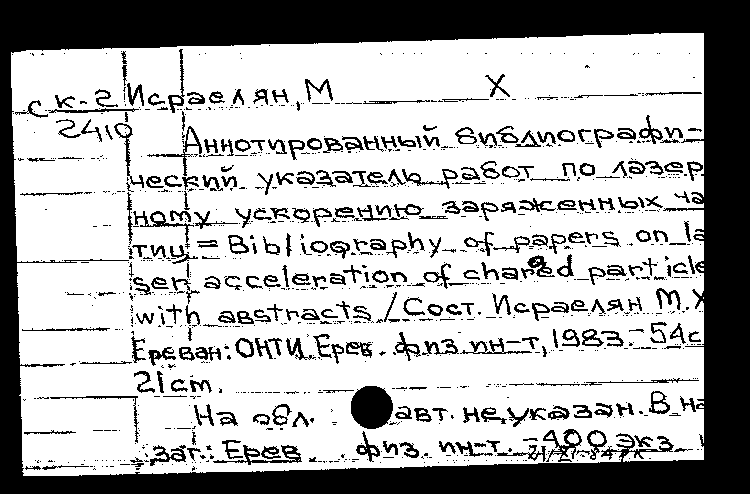 с к-2 Исраелян, М Х
2410
Аннотированный библиографи-
ческий указатель работ по лазер
ному ускорению заряженных ча
тиц = Bibliography of papers on la
ser acceleration of charged particle
with abstracts / Сост. Исраелян М.Х
Ереван: ОНТИ Ерев. физ. ин-т, 1983.- 54с
21 cm.
На обл. авт. не указан. В на
заг.: Ерев. физ. ин-т. - 400 экз